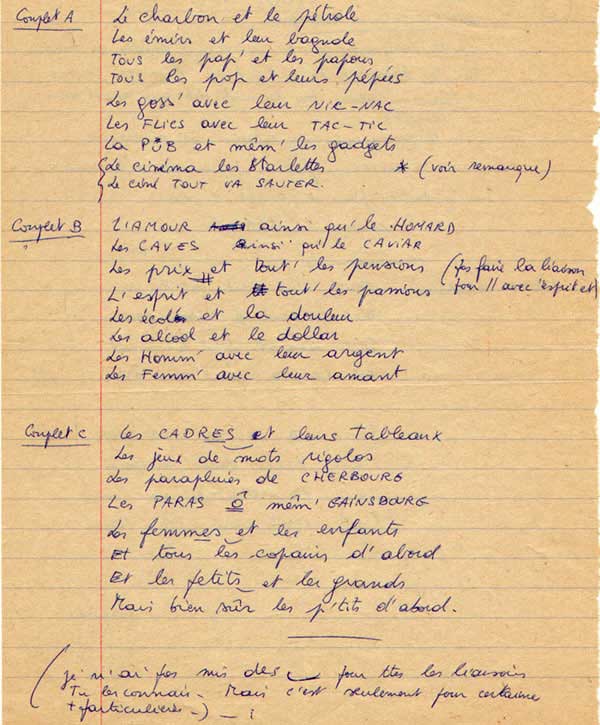 Couplet A Le charbon et le pétrole
Les émirs et leur bagnole
TOUS les pap' et les papous
TOUS les pop et leurs pépées
Les goss' avec leur NIC-NAC
Les FLICS avec leur TAC-TIC
La PUB et mêm' les gadgets
Le cinéma les Starlettes * (voir remarque)
Le ciné TOUT VA SAUTER.
Couplet B L'AMOUR ainsi qu'le HOMARD
Les CAVES ainsi qu'le CAVIAR
Les prix et tout' les pensions (pas faire la liaison
L'esprit et tout' les passions pour // avec "esprit et)
Les écoles et la douleur
Les alcool et le dollar
Les Homm' avec leur argent
Les Femm' avec leur amant
Couplet C Les CADRES et leurs tableaux
Les jeux de mots rigolos
Les parapluies de CHERBOURG
Les PARAS Ô mêm' GAINSBOURG
Les femmes et les enfants
Et tous les copains d'abord
Et les petits et les grands
Mais bien sûr les p'tits d'abord.
(je n'ai pas mis des ‿ pour ttes les liaisons
Tu les connais - Mais c'est seulement pour certaines
+ particulières -) - !